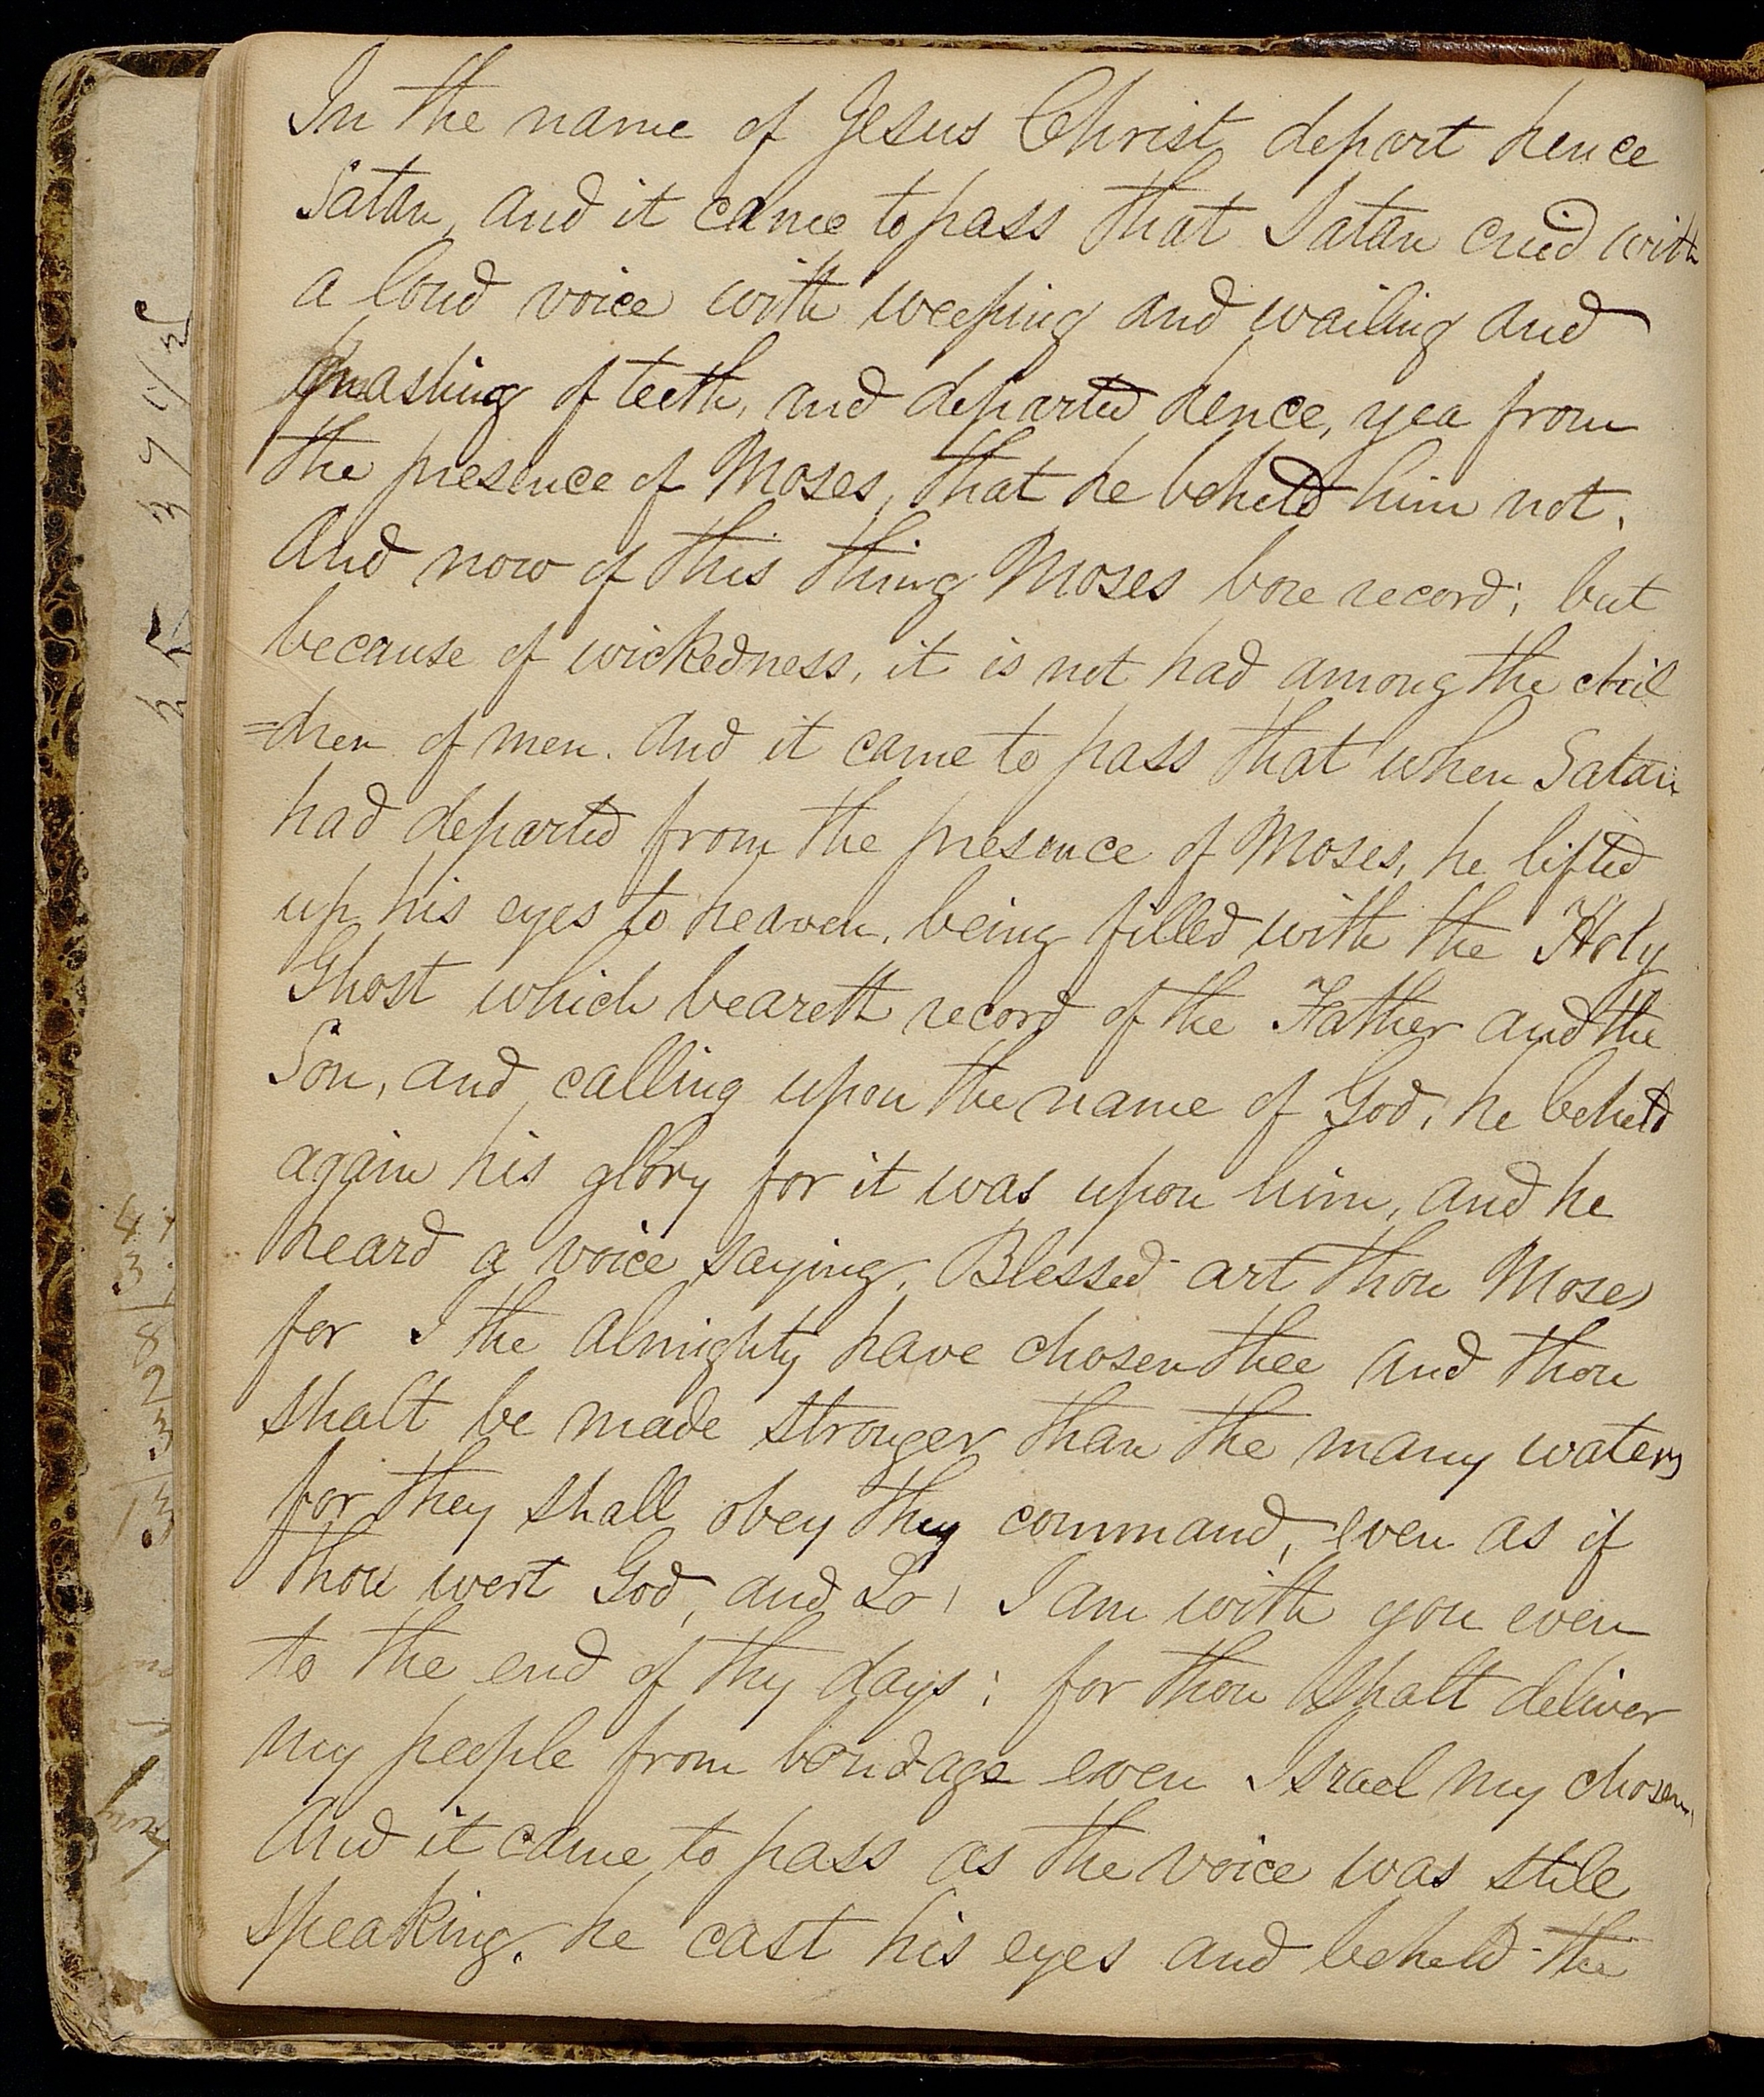 In the name of Jesus Christ depart hence
Satan, and it came to pass that Satan cried with
a loud voice with weeping and wailing and
gnashing of teeth, and departed hence, yea from
the presence of Moses, that he beheld him not.
And now of this thing Moses bore record; but
because of wickedness, it is not had among the chil
=dren of men. And it came to pass that when Satan
had departed from the presence of Moses, he lifted
up his eyes to heaven, being filled with the Holy
Ghost which beareth record of the Father and the
Son, and calling upon the name of God, he beheld
again his glory for it was upon him, and he
heard a voice saying, Blessed art thou Moses
for I the Almighty have chosen thee and thou
shalt be made stronger than the many waters
for they shall obey thy command, even as if
thou wert God, and Lo! I am with you even
to the end of thy days; for thou shalt deliver
my people from bondage even Israel my chosen,
And it came to pass as the voice was still
speaking, he cast his eyes and beheld the